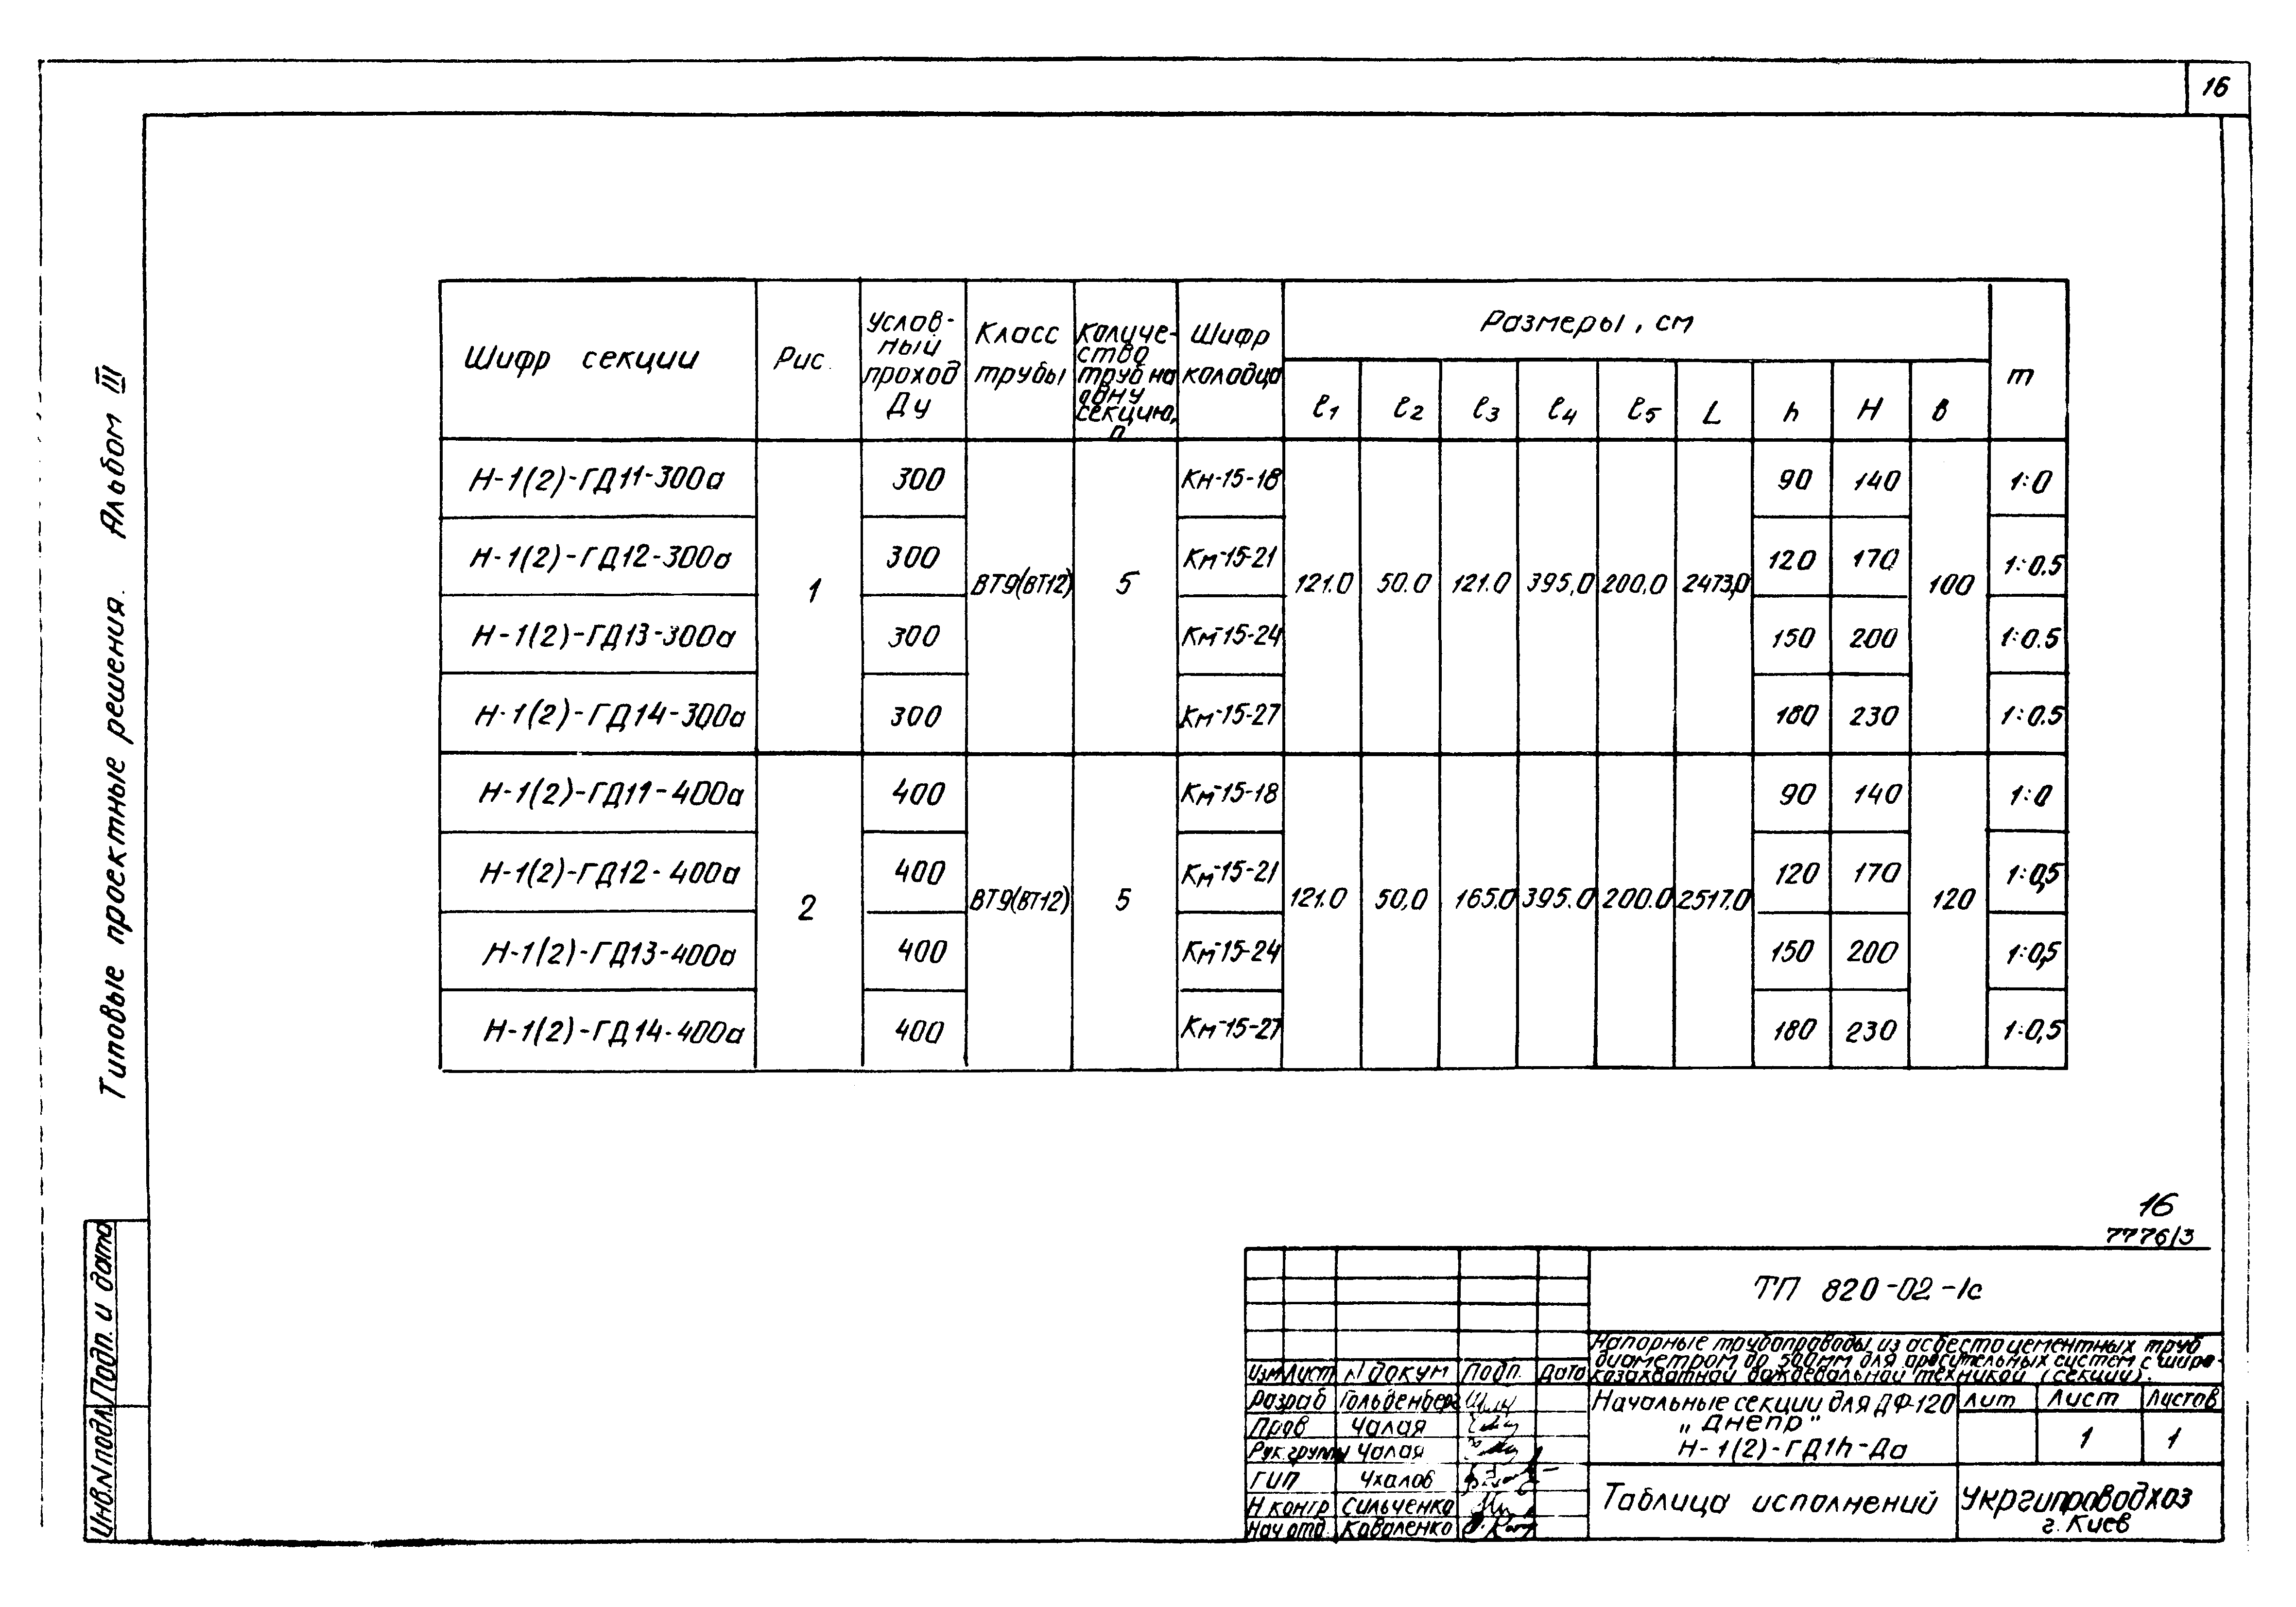 16
Типовые проектные решения. Альбом III
Шифр секции
Рис.
Услов-
ный
проход
Ду
Класс
трубы
Количе-
ство
труб на
одну
секцию,
n
Шифр
колодца
Размеры, см
m
l1 l2 l3 l4 l5 L h H в
Н-1(2)-ГД11-300а 300 Кн-15-18 90 140 1:0
Н-1(2)-ГД12-300а 300 Км-15-21 120 170 1:0.5
1 ВТ9(ВТ12) 5 121.0 50.0 121.0 395,0 200,0 2473,0 100
Н-1(2)-ГД13-300а 300 Км-15-24 150 200 1:0.5
Н-1(2)-ГД14-300а 300 Км-15-27 180 230 1:0.5
Н-1(2)-ГД11-400а 400 Км-15-18 90 140 1:0
Н-1(2)-ГД12-400а 400 Км-15-21 120 170 1:0,5
2 ВТ9(ВТ12) 5 121.0 50,0 165.0 395.0 200.0 2517.0 120
Н-1(2)-ГД13-400а 400 Км-15-24 150 200 1:0,5
Н-1(2)-ГД14-400а 400 Км-15-27 180 230 1:0,5
16
7776/3
ТП 820-02-1с
Напорные трубопроводы из асбестоцементных труб
диаметром до 500мм для оросительных систем с широ-
козахватной дождевальной техникой (секции).
Изм Лист N докум Подп. Дата
Разраб Гольденберг
Пров Чалая
Рук.группы Чалая
ГИП Чхалов
Н.контр Сильченко
Нач отд. Коваленко
Начальные секции для ДФ-120
"Днепр"
Н-1(2)-ГД1h-Да
Лит Лист Листов
1 1
Таблица исполнений
Укргипроводхоз
г. Киев
Инв.N подл. Подп. и дата